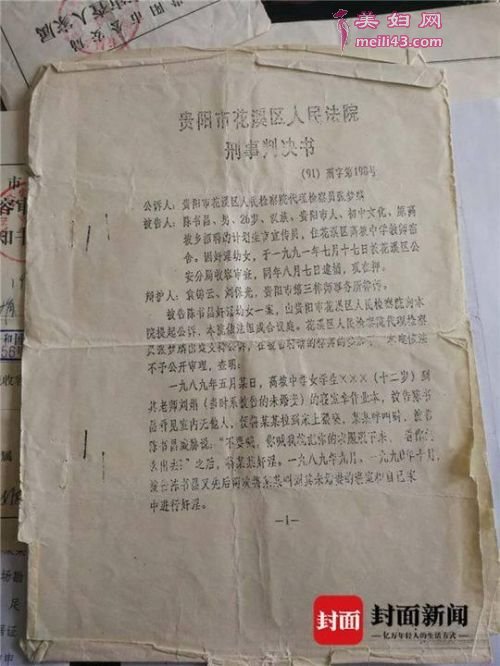 美妇网
meili43.com
贵阳市花溪区人民法院
刑事判决书
(91)刑字第198号
公诉人：贵阳市花溪区人民检察院代理检察员张梦
被告人：陈书昌、男、26岁、汉族、贵阳市人、初中文化、原高
坡乡招聘的计划生育宣传员，住花溪区高坡中学教师宿
舍。因奸淫幼女，于一九九一年七月十七日被花溪区公
安分局收容审查，同年八月七日逮捕，现在押。
辩护人：袁 云、刘 光，贵阳市第三律师事务所律师。
被告陈书昌奸淫幼女一案，由贵阳市花溪区人民检察院向本
院提起公诉，本院依法组成合议庭。花溪区人民检察院代理检察
员张梦 出庭支持公诉，在被告 的辩护 本院依法
不予公开审理，查明：
一九八九年五月某日，高坡中学女学生×××（十二岁）到
其老师刘 （当时系被告的未婚妻）的寝室拿作业本，被告陈书
昌看见室内无他人，便将某某拉到床上 ，某某呼叫时，被告
陈书昌威胁说：“不要喊，你喊我就把你的衣服脱下来，看你
么出去！”之后，将某某奸淫。一九八九年九月、一九九〇年十月，
被告陈书昌又先后两次将某某叫到其未婚妻的寝室和自己家
中进行奸淫。
—1—
封面
封面新闻
—亿万年轻人的生活方式—